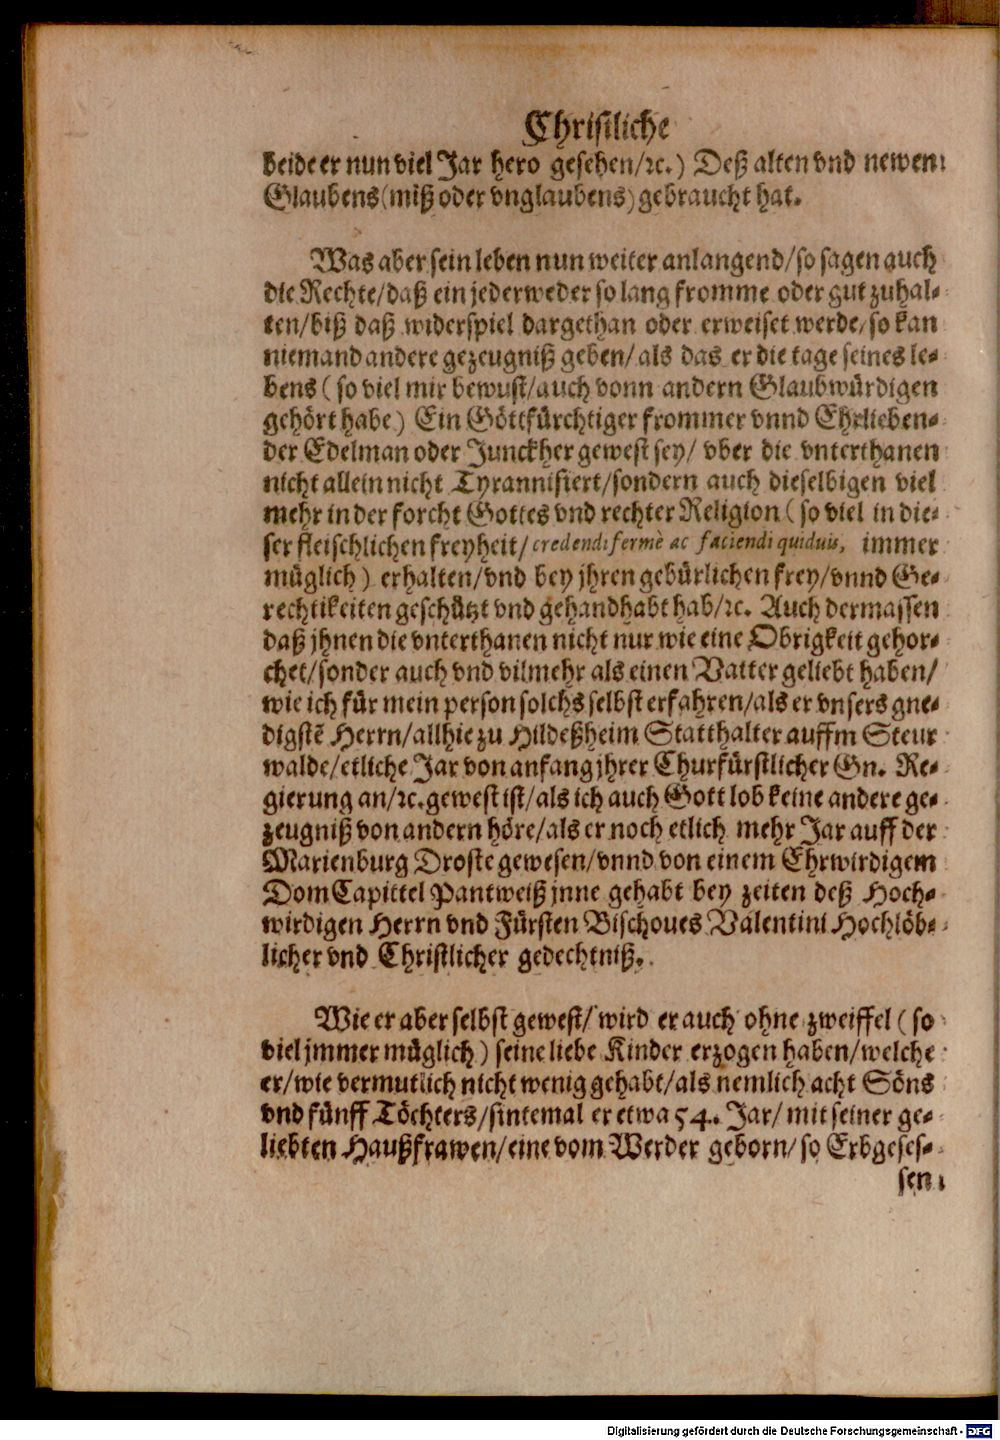 Christliche
beide er nun viel Jar hero gesehen/ꝛc.) Deß alten vnd newen
Glaubens (miß oder vnglaubens) gebraucht hat.
Was aber sein leben nun weiter anlangend/so sagen auch
die Rechte/daß ein jederweder so lang fromme oder gut zuhal-
ten/biß daß widerspiel dargethan oder erweiset werde/so kan
niemand andere gezeugniß geben/als das er die tage seines le-
bens (so viel mir bewust/auch vonn andern Glaubwürdigen
gehört habe) Ein Göttfürchtiger frommer vnnd Ehrlieben-
der Edelman oder Junckher gewest sey/ vber die vnterthanen
nicht allein nicht Tyrannisiert/sondern auch dieselbigen viel
mehr in der forcht Gottes vnd rechter Religion (so viel in die-
ser fleischlichen freyheit/credendi fermè ac faciendi quiduis, immer
müglich) erhalten/vnd bey jhren gebürlichen frey/vnnd Ge-
rechtikeiten geschützt vnd gehandhabt hab/ꝛc. Auch dermassen
daß jhnen die vnterthanen nicht nur wie eine Obrigkeit gehor-
chet/sonder auch vnd vilmehr als einen Vatter geliebt haben/
wie ich für mein person solchs selbst erfahren/als er vnsers gne-
digstẽ Herrn/allhie zu Hildeßheim Statthalter auffm Steur
walde/etliche Jar von anfang jhrer Churfürstlicher Gn. Re-
gierung an/ꝛc. gewest ist/als ich auch Gott lob keine andere ge-
zeugniß von andern höre/als er noch etlich mehr Jar auff der
Marienburg Droste gewesen/vnnd von einem Ehrwirdigem
Dom Capittel Pantweiß jnne gehabt bey zeiten deß Hoch-
wirdigen Herrn vnd Fürsten Bischoues Valentini Hochlöb-
licher vnd Christlicher gedechtniß.
Wie er aber selbst gewest/ wird er auch ohne zweiffel (so
viel jmmer müglich) seine liebe Kinder erzogen haben/welche
er/wie vermutlich nicht wenig gehabt/als nemlich acht Söns
vnd fünff Töchters/sintemal er etwa 54. Jar/ mit seiner ge-
liebten Haußfrawen/eine vom Werder geborn/so Erbgeses-
sen
Digitalisierung gefördert durch die Deutsche Forschungsgemeinschaft - DFG